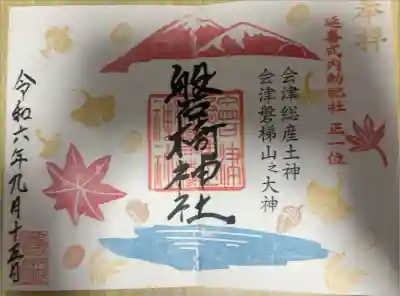 奉拝
延喜式内勅祀社 正一位
会津総産土神
会津磐梯山之大神
磐椅神社
令和六年九月十五日